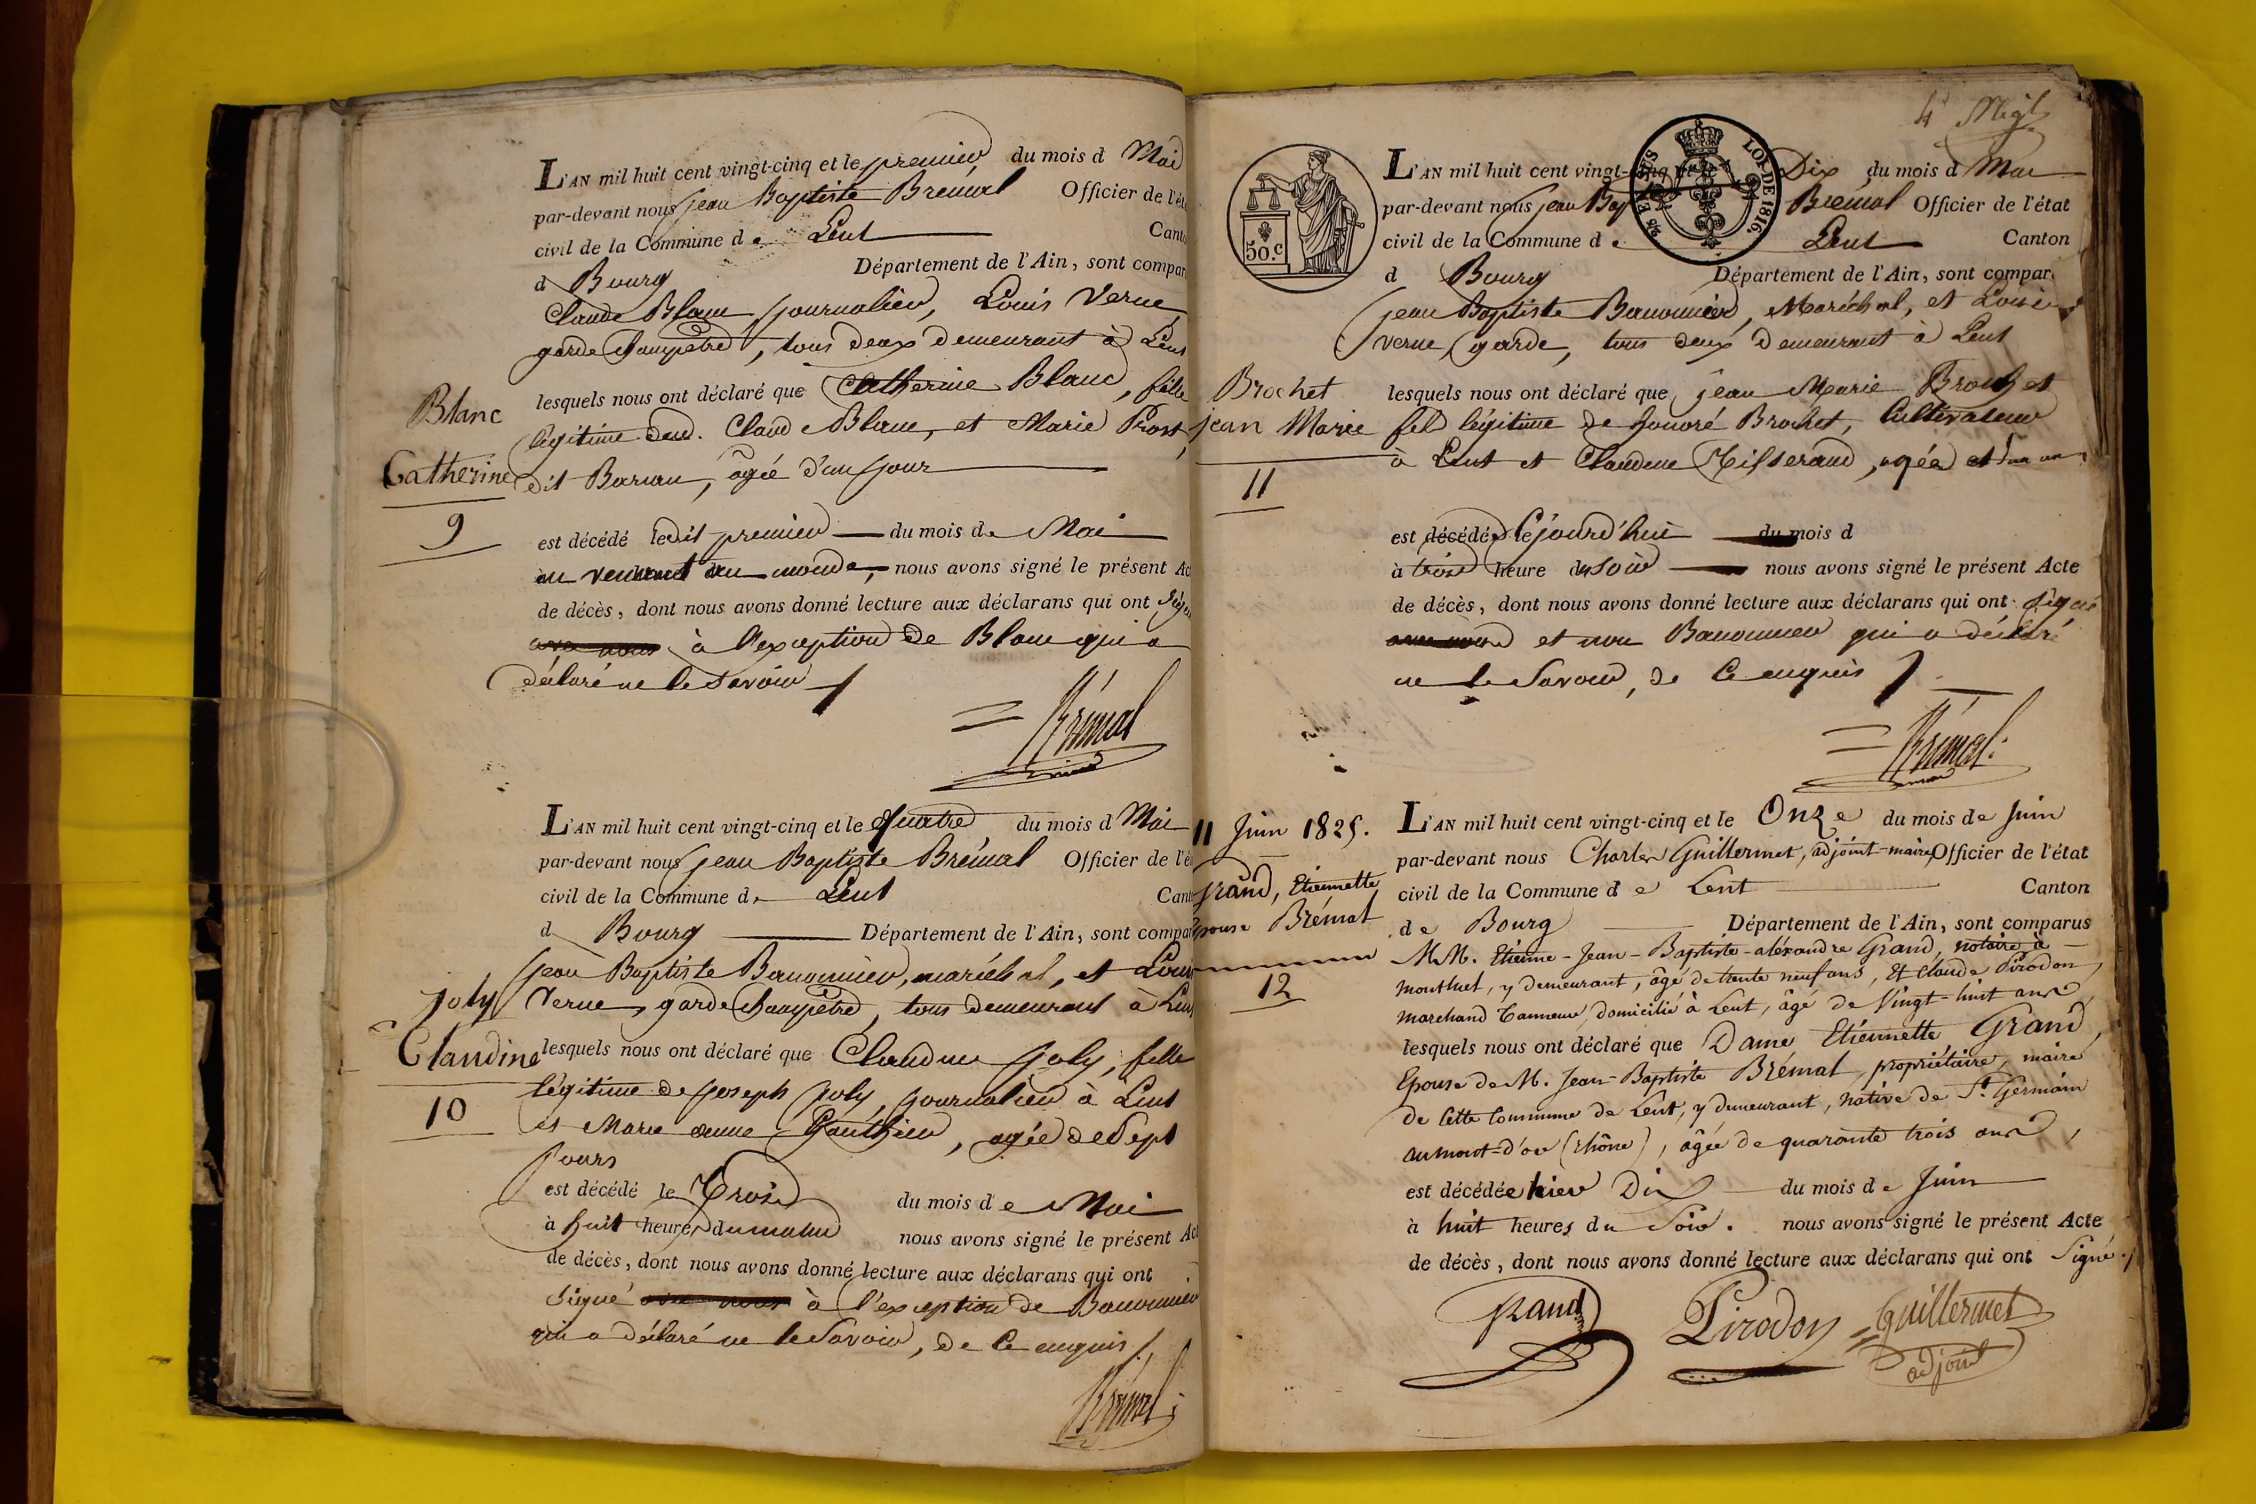 L'AN mil huit cent vingt-cinq et le premier du mois d Mai
par-devant nous jean Baptiste Brémal Officier de l'éta
civil de la Commune de Lent Canto
d Bourg Département de l'Ain, sont compar
Claude Blanc journalier, Louis Verne
garde Champêtre, tous deux demeurant à Lent
Blanc
Catherine
9
lesquels nous ont déclaré que Catherine Blanc, fille
légitime dud. Claude Blanc, et Marie Prost,
dit Barian, âgée d'un jour
est décédé ledit premier du mois de Mai
au venant au monde, nous avons signé le présent Ac
de décès, dont nous avons donné lecture aux déclarans qui ont signé
à l'exception de Blanc qui a
déclaré ne le savoir
Brémal
L'AN mil huit cent vingt-cinq et le quatre du mois d Mai
par-devant nous jean Baptiste Brémal Officier de l'ét
civil de la Commune de Lent Cant
d Bourg Département de l'Ain, sont compar
jean Baptiste Banonnier, maréchal, et Louis
Verne, garde Champêtre, tous demeurant à Lent
Joly
Claudine
10
lesquels nous ont déclaré que Claudine joly, fille
légitime de joseph joly, journalier à Lent
et Marie anne Gauthier, agée de Sept
jours
est décédé le Trois du mois de Mai
à huit heures du matin nous avons signé le présent Ac
de décès, dont nous avons donné lecture aux déclarans qui ont
signé à l'exception de Banonnier
qui a déclaré ne le Savoir, de Ce enquis
Brémal
50.c
25 EN SUS LOI DE 1816.
L'AN mil huit cent vingt-cinq et le Dix du mois d Mai
par-devant nous jean Bap Brémal Officier de l'état
civil de la Commune de Lent Canton
d Bourg Département de l'Ain, sont compar
jean Baptiste Banonnier, Maréchal, et Louis
verne, garde, tous deux demeurant à Lent
Brochet
jean Marie
11
lesquels nous ont déclaré que jean Marie Brochet
fils légitime de honoré Brochet, Cultivateur
à Lent et Claudine Tisserand, agée d'un an
est décédé Cejourd'hui du mois d
à trois heure du soir nous avons signé le présent Acte
de décès, dont nous avons donné lecture aux déclarans qui ont signé
et non Banonnier qui a déclaré
ne le Savoir, de Ce enquis
Brémal
11 Juin 1825.
Grand, Etiennette,
épouse Brémal
12
L'AN mil huit cent vingt-cinq et le Onze du mois de Juin
par-devant nous Charles Guillermet, adjoint-maire, Officier de l'état
civil de la Commune de Lent Canton
de Bourg Département de l'Ain, sont comparus
M.M. Etienne-Jean-Baptiste-aléxandre Grand, notaire à
montluel, y demeurant, âgé de trente neuf ans, Et Claude Pirodon,
marchand Tanneur, domicilié à Lent, âgé de Vingt-huit ans,
lesquels nous ont déclaré que Dame Etiennette Grand,
Epouse de M. Jean-Baptiste Brémal, propriétaire, maire
de Cette Commune de Lent, y demeurant, native de St. Germain
au mont-d'or (rhône), âgée de quarante trois ans,
est décédée hier Dix du mois de Juin
à huit heures du Soir. nous avons signé le présent Acte
de décès, dont nous avons donné lecture aux déclarans qui ont Signé.
Grand
Pirodon
Guillermet
adjoint